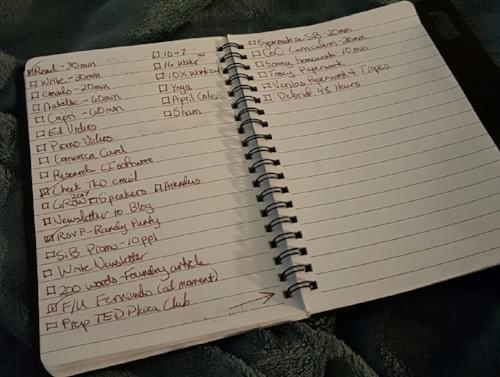 Read - 30min
Write - 30min
Emails - 20min
- 60min
Capri - 60min
Ed Videos
Promo Videos
Comerica Card
Research LI Software
Check TKO email
GROW 2017 Speakers Attendees
Newsletter to Blog
RSVP - Randy Purity
SiB Promo - 10ppl
Write Newsletter
200 words - Foundry article
F/U Fernando (ad moment)
Prep TED Plaza Club
10 - 7
16 Water
10X Workout
Yoga
April Cole
Sham
Systematize SiB - 20min
Curriculum - 20min
Sonny homework - 10min
Tracy Paperwork
Paperwork &
Debrief 48 Hours